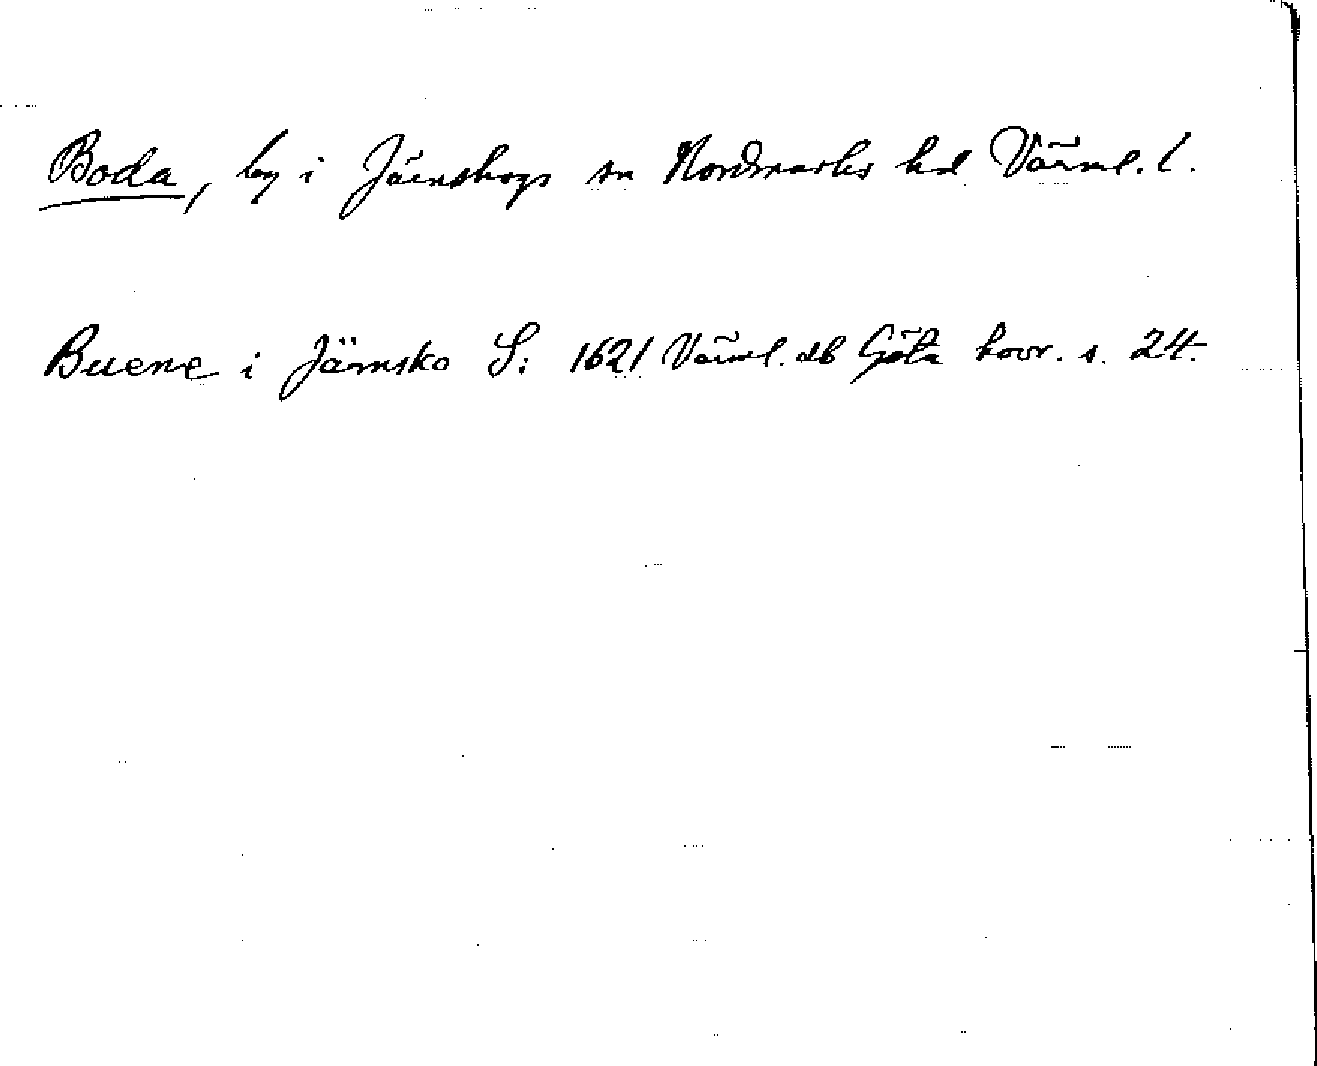 Boda, by i Järnskogs sn Nordmarks hd Värml. l.
Buene i Järnsko S: 1621 Värml. db Göta hovr. s. 24.